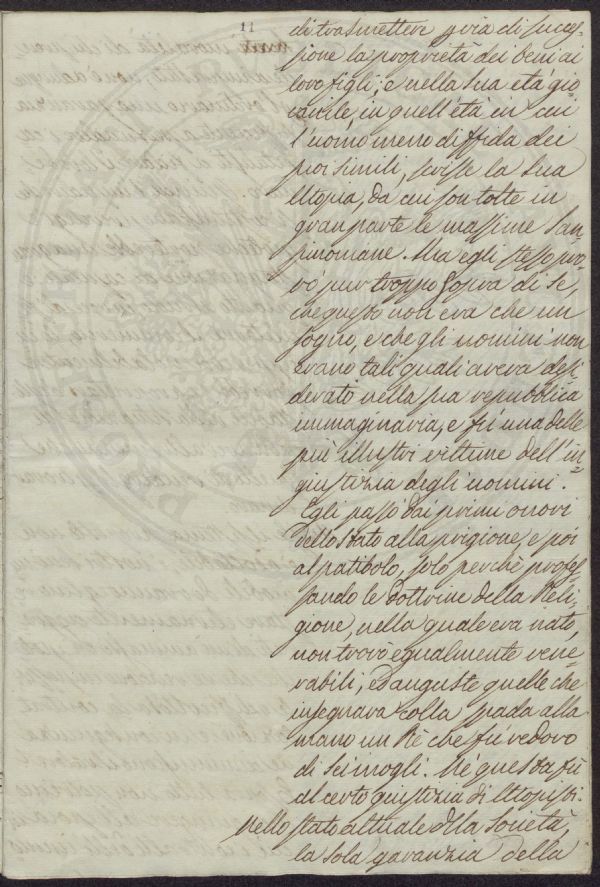 11
di trasmettere p via di succes-
sione la proprietà dei beni ai
loro figli; e nella sua età gio
vanile, in quell'età in cui
l'uomo meno diffida dei
suoi simili, scrisse la sua
Utopia, da cui son tolte in
gran parte le massime San-
simoniane. Ma egli stesso pro-
vò pur troppo sopra di se,
che questo non era che un
sogno, e che gli uomini non
erano tali quali aveva desi
derato nella sua repubblica
immaginaria, e fù una delle
più illustri vittime dell'in-
giustizia degli uomini.
Egli passò dai primi onori
dello Stato alla prigione, e poi
al patibolo, solo perchè profes-
sando le dottrine della Reli-
gione, nella quale era nato,
non trovò egualmente vene-
rabili, ed auguste quelle che
insegnava colla spada alla
mano un Rè che fù vedovo
di sei mogli. Nè questa fù
al certo giustizia di Utopisti.
Nello stato attuale della società,
la sola garanzia della